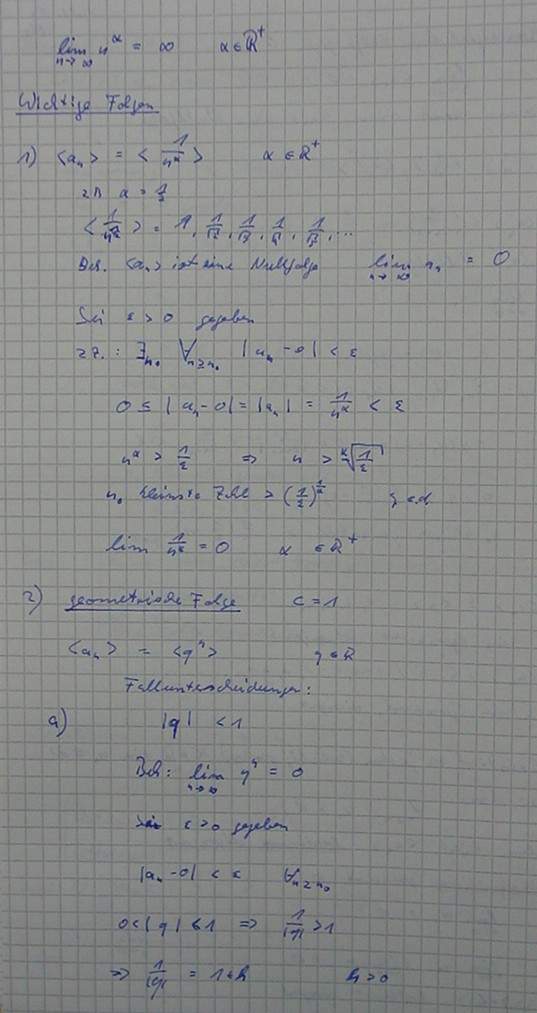 lim n→∞ n^α = ∞ α ∈ ℝ⁺
Wichtige Folgen
1) <aₙ> = < 1/n^α > α ∈ ℝ⁺
zB α = 1/2
< 1/√n > = 1, 1/√2, 1/√3, 1/√4, 1/√5, ...
Beh. <aₙ> ist eine Nullfolge lim n→∞ aₙ = 0
Sei ε > 0 gegeben
zZ.: ∃n₀ ∀n≥n₀ |aₙ - 0| < ε
0 ≤ |aₙ - 0| = |aₙ| = 1/n^α < ε
n^α > 1/ε ⇒ n > α√(1/ε)
n₀ kleinste Zahl > (1/ε)^(1/α) q.e.d.
lim 1/n^α = 0 α ∈ ℝ⁺
2) geometrische Folge c = 1
<aₙ> = <qⁿ> q ∈ ℝ
Fallunterscheidungen:
a) |q| < 1
Beh: lim n→∞ qⁿ = 0
Sei ε > 0 gegeben
|aₙ - 0| < ε ∀n≥n₀
0 < |q| < 1 ⇒ 1/|q| > 1
⇒ 1/|q| = 1 + h h > 0